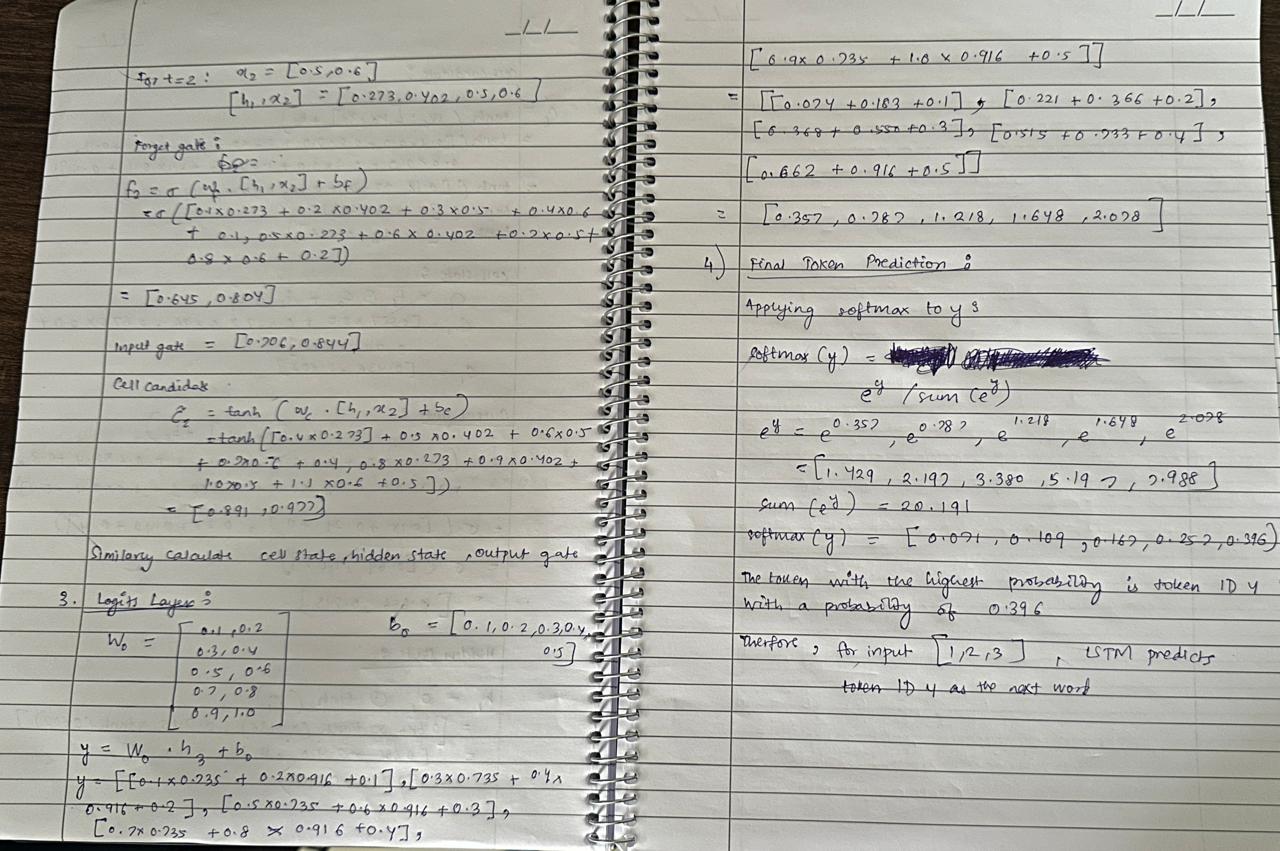 for t=2 : x₂ = [0.5, 0.6]
[h₁, x₂] = [0.273, 0.402, 0.5, 0.6]
Forget gate :
f₂ = σ (wf . [h₁, x₂] + bf)
= σ ([0.1×0.273 + 0.2 ×0.402 + 0.3×0.5 + 0.4×0.6
+ 0.1, 0.5×0.273 + 0.6 × 0.402 +0.7×0.5+
0.8 × 0.6 + 0.2])
= [0.645, 0.804]
Input gate = [0.706, 0.844]
Cell candidate
= tanh (wc . [h₁, x₂] + bc)
= tanh ([0.4×0.273] + 0.5 ×0.402 + 0.6×0.5
+ 0.7×0.6 + 0.4, 0.8 ×0.273 +0.9×0.402 +
1.0×0.5 + 1.1 ×0.6 +0.5])
= [0.891, 0.977]
Similarly calculate cell state, hidden state, output gate
3. Logits Layer :
W₀ = [0.1, 0.2
0.3, 0.4
0.5, 0.6
0.7, 0.8
0.9, 1.0]
b₀ = [0.1, 0.2, 0.3, 0.4,
0.5]
y = W₀ . h₃ + b₀
y = [[0.1×0.735 + 0.2×0.916 +0.1], [0.3×0.735 + 0.4×
0.916 + 0.2], [0.5×0.735 + 0.6×0.916 + 0.3],
[0.7×0.735 +0.8 × 0.916 +0.4],
[0.9× 0.735 + 1.0 × 0.916 +0.5]]
= [[0.074 +0.183 +0.1], [0.221 + 0.366 +0.2],
[0.368 + 0.550 +0.3], [0.515 +0.733 + 0.4],
[0.662 + 0.916 +0.5]]
= [0.357, 0.787, 1.218, 1.648, 2.078]
4.) Final Token Prediction :
Applying softmax to y :
softmax (y) =
e^y / sum (e^y)
e^y = e^0.357, e^0.787, e^1.218, e^1.648, e^2.078
= [1.429, 2.197, 3.380, 5.197, 7.988]
sum (e^y) = 20.191
softmax (y) = [0.071, 0.109, 0.167, 0.257, 0.396]
The token with the highest probability is token ID 4
with a probability of 0.396
Therfore, for input [1,2,3], LSTM predicts
token ID 4 as the next word